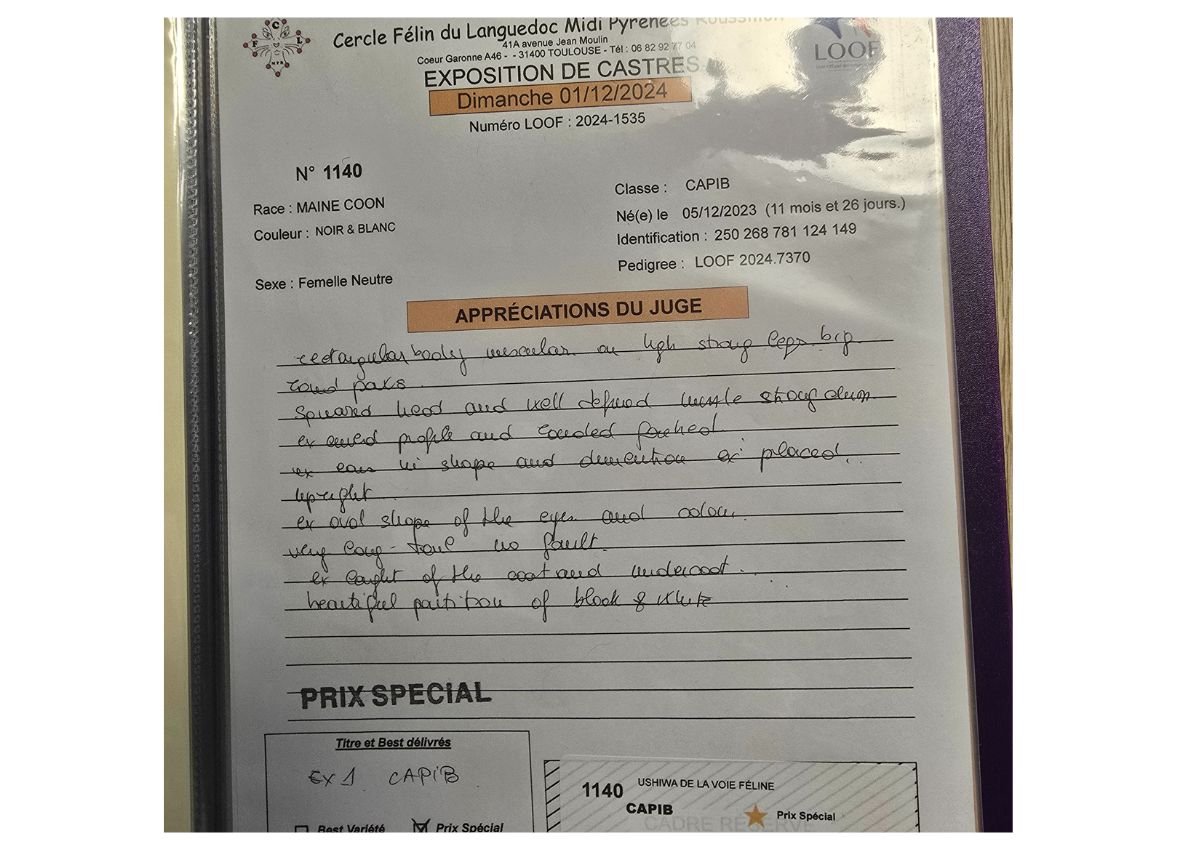 Cercle Félin du Languedoc Midi Pyrénées Roussillon
41A avenue Jean Moulin
Coeur Garonne A46 - - 31400 TOULOUSE - Tél : 06 82 92 77 04
F C L
M.P.R
LOOF
EXPOSITION DE CASTRES
Dimanche 01/12/2024
Numéro LOOF : 2024-1535
N° 1140
Classe : CAPIB
Race : MAINE COON
Né(e) le 05/12/2023 (11 mois et 26 jours.)
Couleur : NOIR & BLANC
Identification : 250 268 781 124 149
Pedigree : LOOF 2024.7370
Sexe : Femelle Neutre
APPRÉCIATIONS DU JUGE
rectangular body muscular on high strong legs big
round paws
squared head and well defined muzzle strong
ex profile and rounded
ex ears in shape and ex placed
upright
ex oval shape of the eyes and colour
very long no fault.
ex of the coat and undercoat.
beautiful of black & white
PRIX SPECIAL
Titre et Best délivrés
Ex 1 CAPIB
1140 USHIWA DE LA VOIE FÉLINE
CAPIB
Prix Spécial
CADRE RÉSERVÉ
Best Variété Prix Spécial